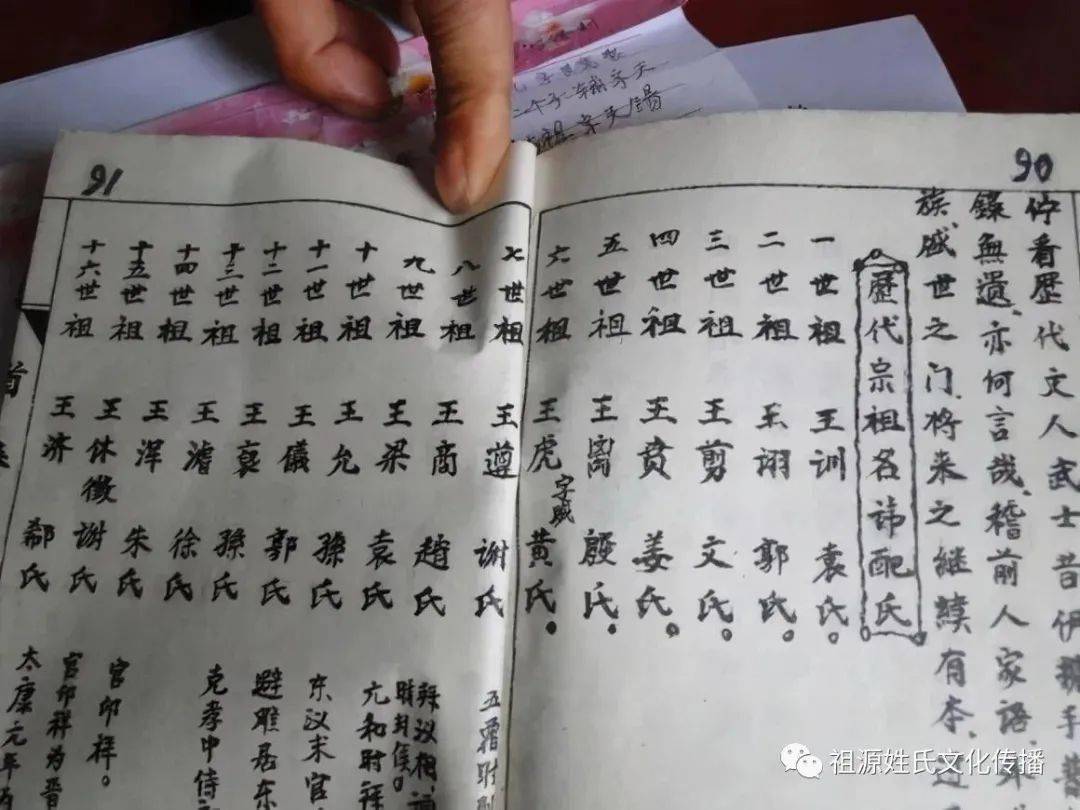 90
佇看歷代文人武士昔伊
錄無遺、亦何言哉、稽前人家語、
族、威世之门、将来之继續有本、
歷代宗祖名讳配氏
一世祖 王训 袁氏。
二世祖 王诩 郭氏。
三世祖 王剪 文氏。
四世祖 王贲 姜氏。
五世祖 王离 殷氏。
六世祖 王虎 字威 黄氏。
91
七世祖 王遵 谢氏
八世祖 王商 趙氏
九世祖 王梁 袁氏
十世祖 王允 孫氏
十一世祖 王儀 郭氏
十二世祖 王裒 孫氏
十三世祖 王濬 徐氏
十四世祖 王浑 朱氏
十五世祖 王休徵 谢氏
十六世祖 王济 郗氏
亢和时拜
东汉末官
避雎居东
克孝中侍
官邱祥。
官邱祥为晋
太康元年
二个子
祖源姓氏文化传播